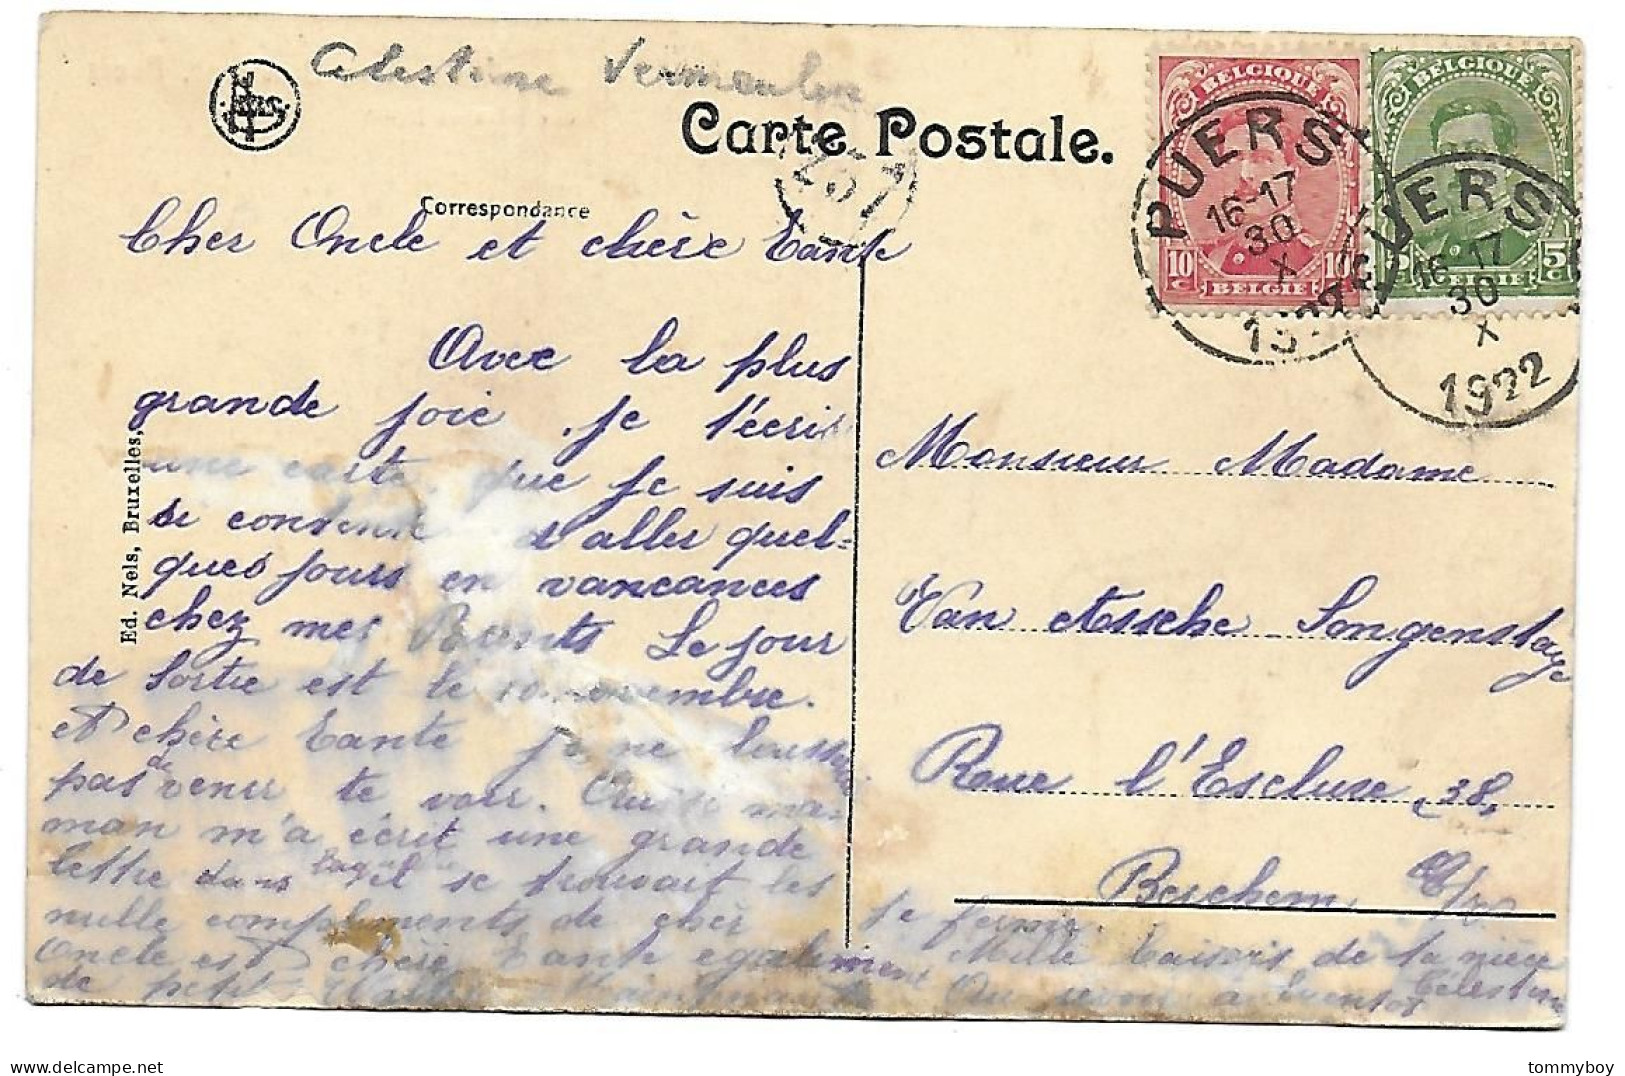 Celestine Vermeulen
Nels.
Carte Postale.
Correspondance
BELGIQUE
10 c 10 c
BELGIE
BELGIQUE
5 c 5 c
BELGIE
PUERS
16-17
30
X
1922
PUERS
16-17
30
X
1922
Ed. Nels, Bruxelles.
Cher Oncle et chère Tante
Avec la plus
grande joie, je t'écris
une carte, que je suis
si contente d'aller quel-
ques jours en vancances
chez mes Parents Le jour
de sortie est le 10 novembre.
et chère Tante je ne
pas de venir te voir. Aussi ma-
man m'a écrit une grande
lettre dans laquelle il se trouvait les
mille compliments de cher
Oncle et chère Tante egalement
de petit
je ferme.
Mille baisers de ta nièce
Au revoir à bientot Célestine
Monsieur Madame
Van Assche Songenstage
Rue l'Escluse 38,
Berchem
tommyboy